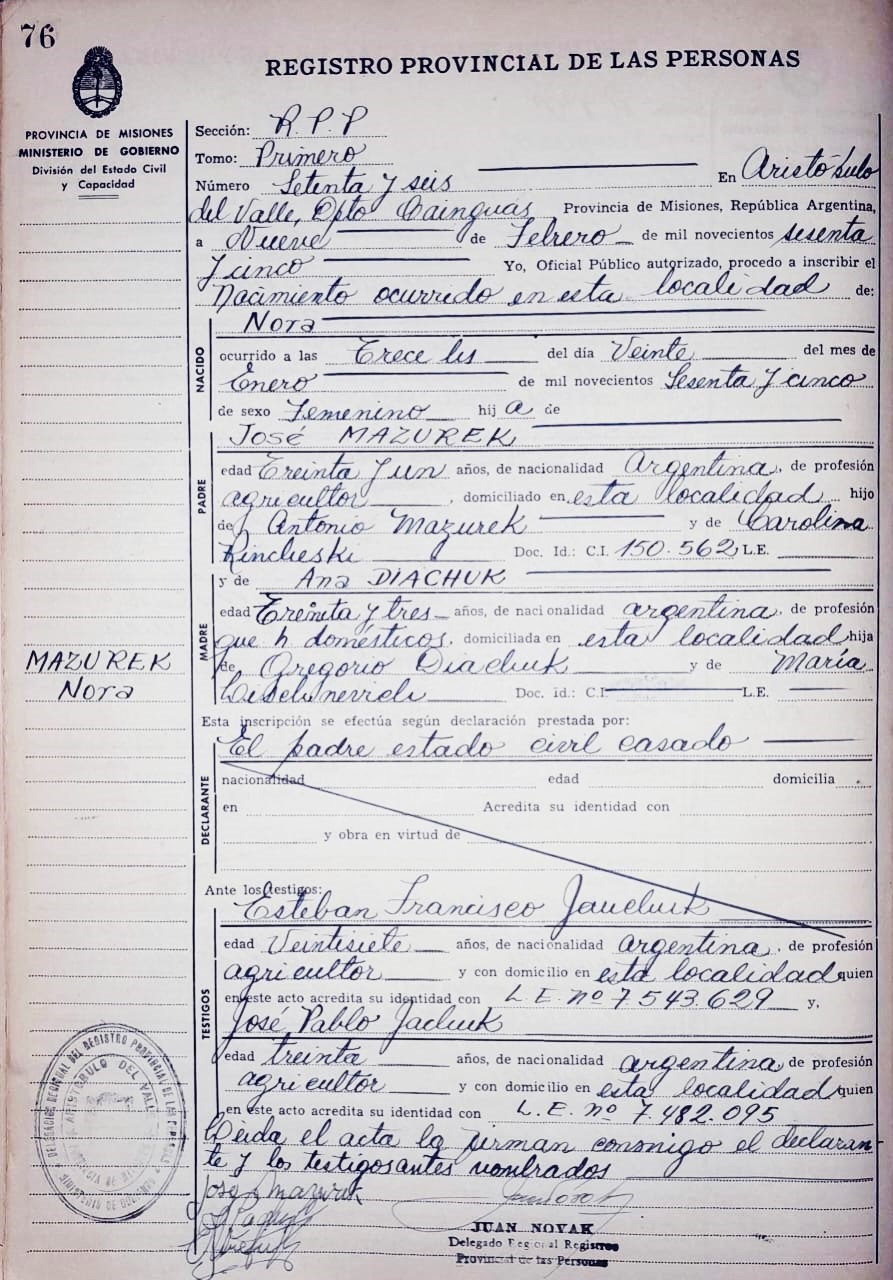 76
REGISTRO PROVINCIAL DE LAS PERSONAS
PROVINCIA DE MISIONES
MINISTERIO DE GOBIERNO
División del Estado Civil
y Capacidad
Sección: R.P.P
Tomo: Primero
Número Setenta y seis En Aristóbulo
del Valle, Dpto Cainguás Provincia de Misiones, República Argentina,
a Nueve de Febrero de mil novecientos sesenta
y cinco Yo, Oficial Público autorizado, procedo a inscribir el
Nacimiento ocurrido en esta localidad de:
Nora
NACIDO
ocurrido a las Trece hs del día Veinte del mes de
Enero de mil novecientos Sesenta y cinco
de sexo Femenino hij a de
José MAZUREK
PADRE
edad Treinta y un años, de nacionalidad Argentina, de profesión
agricultor, domiciliado en esta localidad hijo
de Antonio Mazurek y de Carolina
Doc. Id.: C.I. 150.562 L.E.
y de Ana DIACHUK
MADRE
edad Treinta y tres años, de nacionalidad argentina, de profesión
que h domésticos, domiciliada en esta localidad hija
de Gregorio Diachuk y de María
Doc. id.: C.I. L.E.
MAZUREK
Nora
Esta inscripción se efectúa según declaración prestada por:
El padre estado civil casado
DECLARANTE
nacionalidad edad domicilia
en Acredita su identidad con
y obra en virtud de
Ante los testigos:
Esteban Francisco
TESTIGOS
edad Veintisiete años, de nacionalidad argentina, de profesión
agricultor y con domicilio en esta localidad quien
en este acto acredita su identidad con L.E. nº 7.543.629 y,
José Pablo
edad treinta años, de nacionalidad argentina de profesión
agricultor y con domicilio en esta localidad quien
en este acto acredita su identidad con L.E. nº 7.482.095
Leida el acta la firman conmigo el declaran-
te y los testigos antes nombrados
José Mazurek
JUAN NOVAK
Delegado Regional Registros
Provincial de las Personas
DELEGACION REGIONAL DEL REGISTRO PROVINCIAL DE LAS PERSONAS
ARISTOBULO DEL VALLE
MINISTERIO DE GOBIERNO